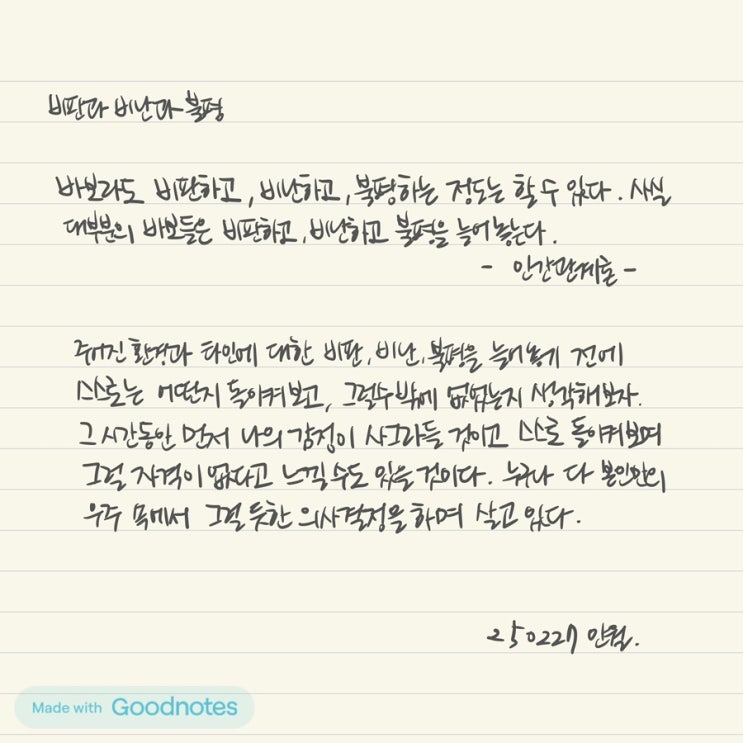 비판과 비난과 불평
바보라도 비판하고, 비난하고, 불평하는 정도는 할 수 있다. 사실
대부분의 바보들은 비판하고, 비난하고 불평을 늘어놓는다.
- 인간관계론 -
주어진 환경과 타인에 대한 비판, 비난, 불평을 늘어놓기 전에
스스로는 어떤지 돌이켜보고, 그럴수밖에 없었는지 생각해보자.
그 시간동안 먼저 나의 감정이 사그라들 것이고 스스로 돌이켜보며
그럴 자격이 없다고 느낄 수도 있을 것이다. 누구나 다 본인만의
우주 속에서 그럴 듯한 의사결정을 하며 살고 있다.
250227
Made with Goodnotes